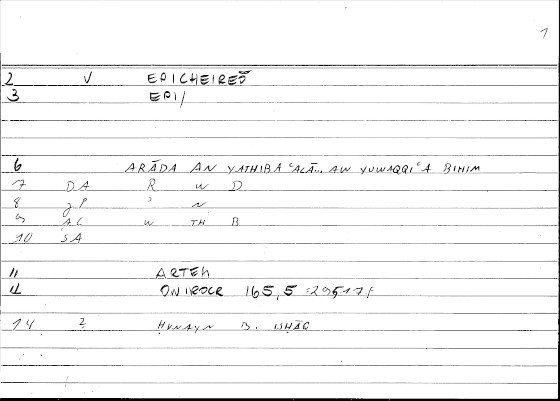 1
2 V EPICHEIREŌ
3 EPI/
6 ARĀDA AN YATHIBA ʿALĀ... AW YUWAQQIʿA BIHIM
7 DA R W D
8 gP ʾ N
9 AC W TH B
10 SA
11 ARTEM
12 ONIROCR 165,5 =295,17f
14 2 ḤUNAYN B. ISḤĀQ